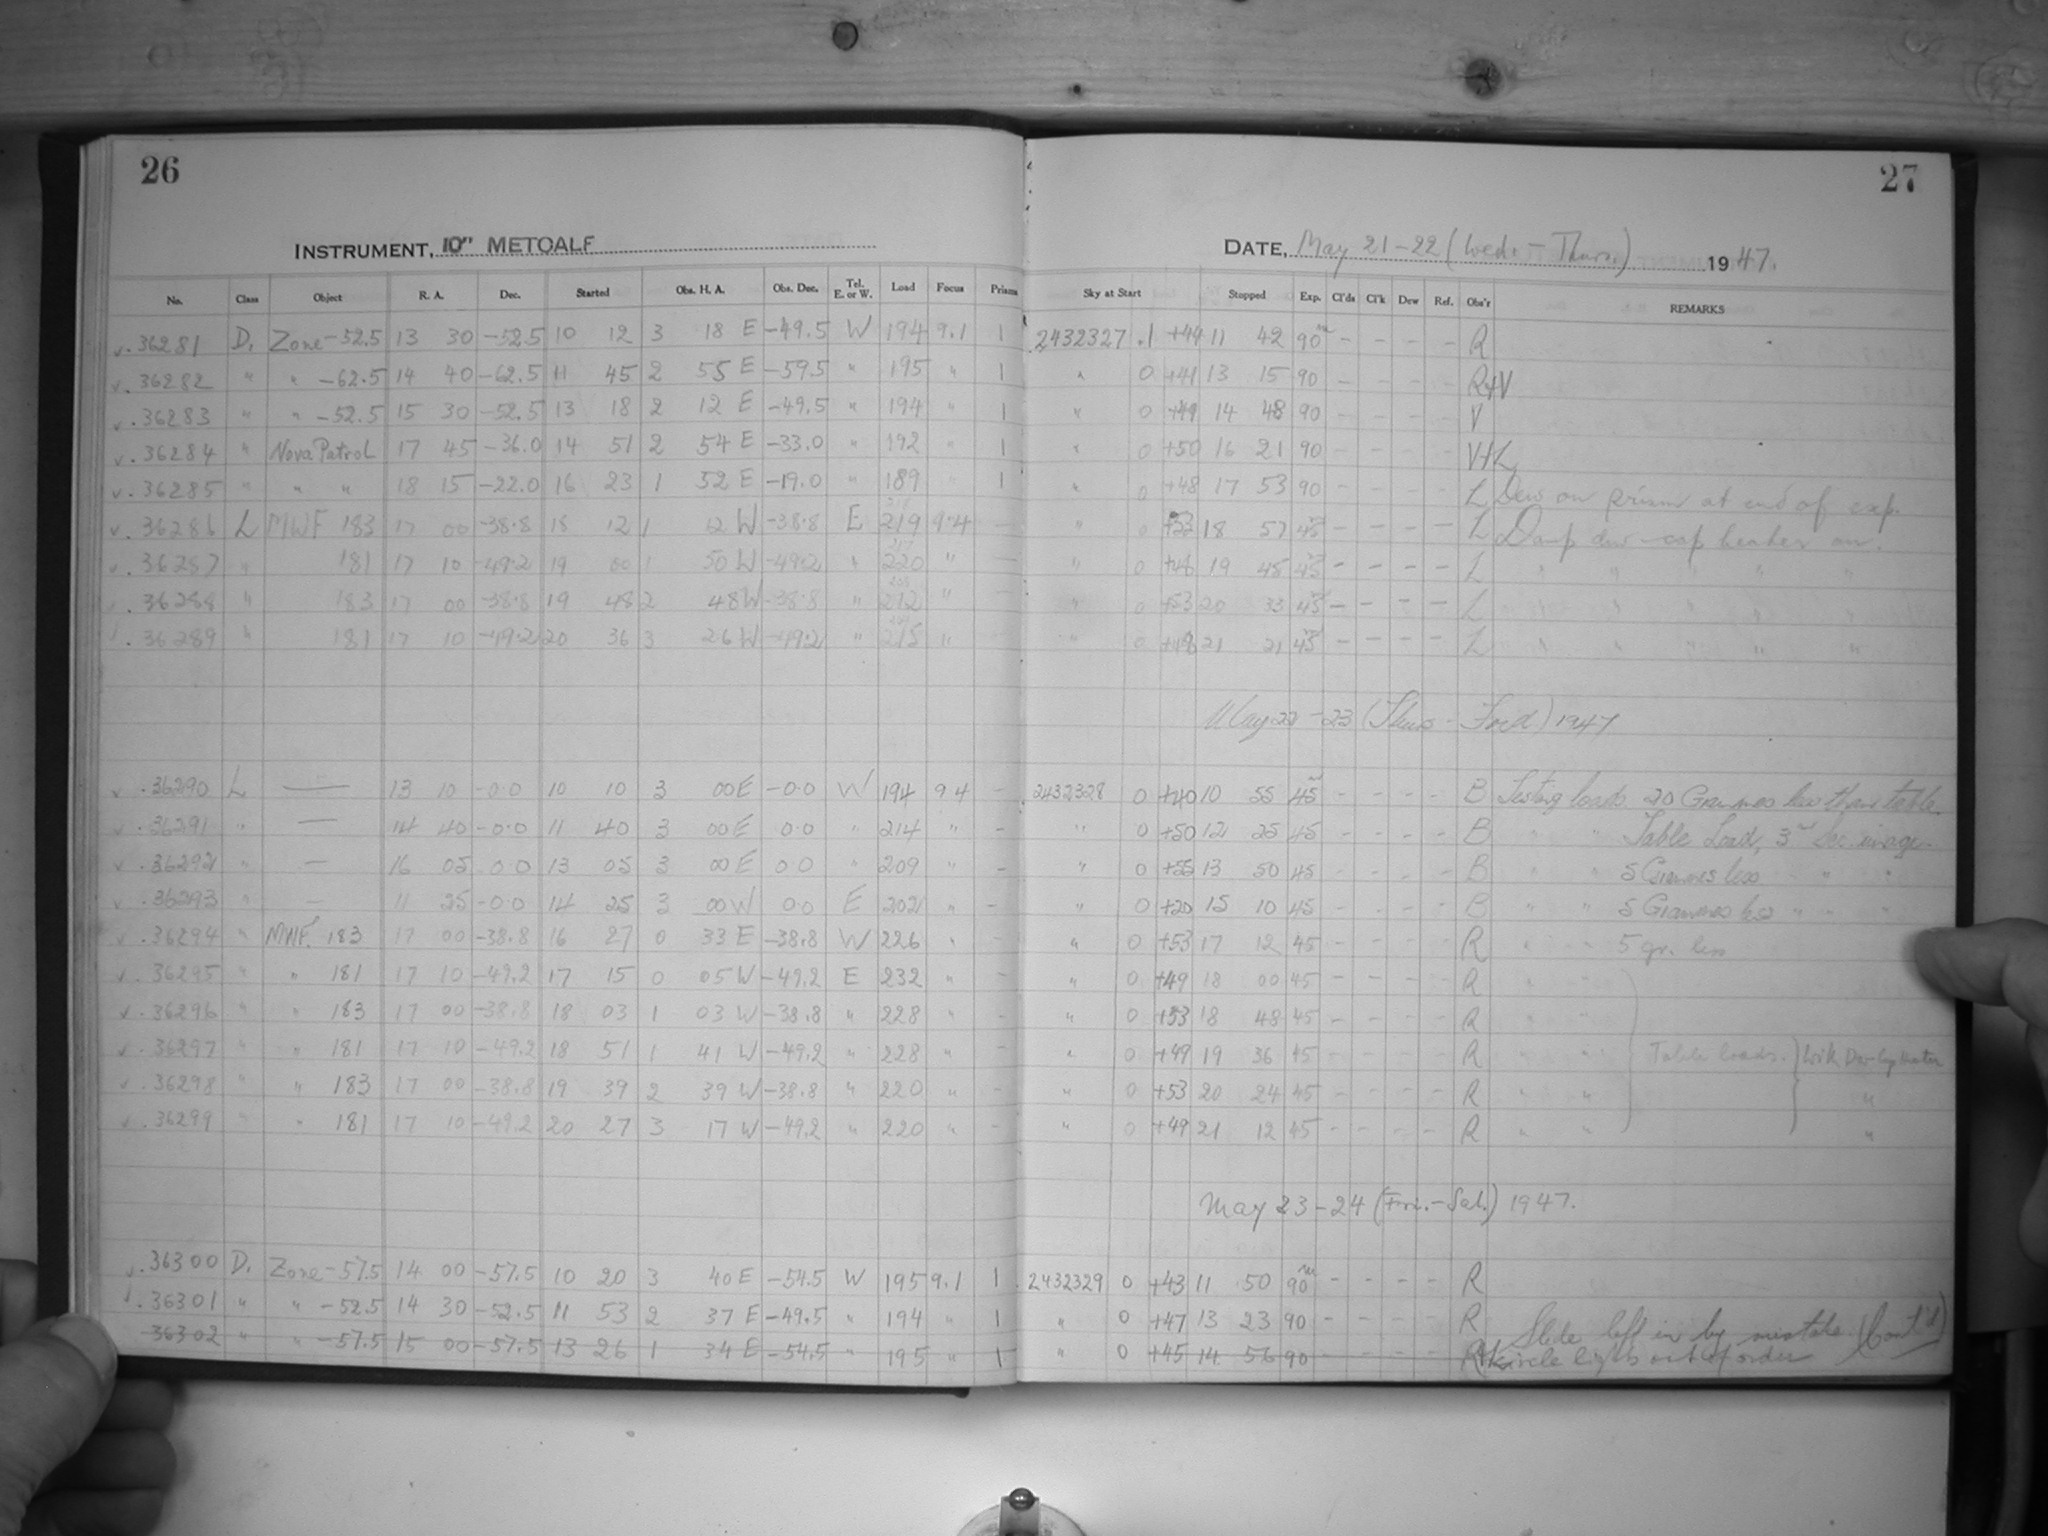 26
27
INSTRUMENT, 10" METCALF
DATE, May 21-22 (Wed. - Thurs.) 1947.
No. Class Object R. A. Dec. Started Obs. H. A. Obs. Dec. Tel. E. or W. Load Focus Prisms Sky at Start Stopped Exp. Cl'ds Cl'k Dew Ref. Obs'r REMARKS
v. 36281 D. Zone -52.5 13 30 -52.5 10 12 3 18 E -49.5 W 194 9.1 1 2432327 .1 +44 11 42 90m - - - - R
v. 36282 " " -62.5 14 40 -62.5 11 45 2 55 E -59.5 " 195 " 1 " 0 +41 13 15 90 - - - - R+V
v. 36283 " " -52.5 15 30 -52.5 13 18 2 12 E -49.5 " 194 " 1 " 0 +49 14 48 90 - - - - V
v. 36284 " Nova Patrol 17 45 -36.0 14 51 2 54 E -33.0 " 192 " 1 " 0 +50 16 21 90 - - - - V+L
v. 36285 " " " 18 15 -22.0 16 23 1 52 E -19.0 " 189 " 1 " 0 +48 17 53 90 - - - - L Dew on prism at end of exp.
v. 36286 L MWF 183 17 00 -38.8 18 12 1 12 W -38.8 E 219 9.4 - " 0 +53 18 57 45 - - - - L Damp dew-cap heater on.
v. 36287 " 181 17 10 -49.2 19 00 1 50 W -49.2 " 220 " - " 0 +48 19 45 45 - - - - L " " " " "
v. 36288 " 183 17 00 -38.8 19 48 2 48 W -38.8 " 212 " - " 0 +53 20 33 45 - - - - L " " " " "
v. 36289 " 181 17 10 -49.2 20 36 3 26 W -49.2 " 215 " " 0 +48 21 21 45 - - - - L " " " " "
May 22-23 (Thurs - Frid) 1947
v. 36290 L — 13 10 -0.0 10 10 3 00 E -0.0 W 194 9.4 - 2432328 0 +40 10 55 45 - - - - B Testing loads 20 Grammes less than table.
v. 36291 " — 14 40 -0.0 11 40 3 00 E 0.0 " 214 " - " 0 +50 12 25 45 - - - - B " " Table Load, 3
v. 36292 " — 16 05 0.0 13 05 3 00 E 0.0 " 209 " - " 0 +55 13 50 45 - - - - B " " 5 Grammes less " "
v. 36293 " — 11 25 -0.0 14 25 3 00 W 0.0 E 202 " - " 0 +20 15 10 45 - - - - B " " 5 Grammes less " "
v. 36294 " MWF. 183 17 00 -38.8 16 27 0 33 E -38.8 W 226 " - " 0 +53 17 12 45 - - - - R " " 5 gr. less
v. 36295 " " 181 17 10 -49.2 17 15 0 05 W -49.2 E 232 " - " 0 +49 18 00 45 - - - - R " "
v. 36296 " " 183 17 00 -38.8 18 03 1 03 W -38.8 " 228 " - " 0 +53 18 48 45 - - - - R " "
v. 36297 " " 181 17 10 -49.2 18 51 1 41 W -49.2 " 228 " - " 0 +49 19 36 45 - - - - R " " Table loads. } With Dew-cap heater
v. 36298 " " 183 17 00 -38.8 19 39 2 39 W -38.8 " 220 " - " 0 +53 20 24 45 - - - - R " " "
v. 36299 " " 181 17 10 -49.2 20 27 3 17 W -49.2 " 220 " - " 0 +49 21 12 45 - - - - R " " "
May 23-24 (Fri.-Sat.) 1947.
v. 36300 D. Zone -57.5 14 00 -57.5 10 20 3 40 E -54.5 W 195 9.1 1 2432329 0 +43 11 50 90m - - - - R
v. 36301 " " -52.5 14 30 -52.5 11 53 2 37 E -49.5 " 194 " 1 " 0 +47 13 23 90 - - - - R
36302 " " -57.5 15 00 -57.5 13 26 1 34 E -54.5 " 195 " 1 " 0 +45 14 56 90 - - - - Slide left in by mistake. (Cont'd)
circle lights out of order